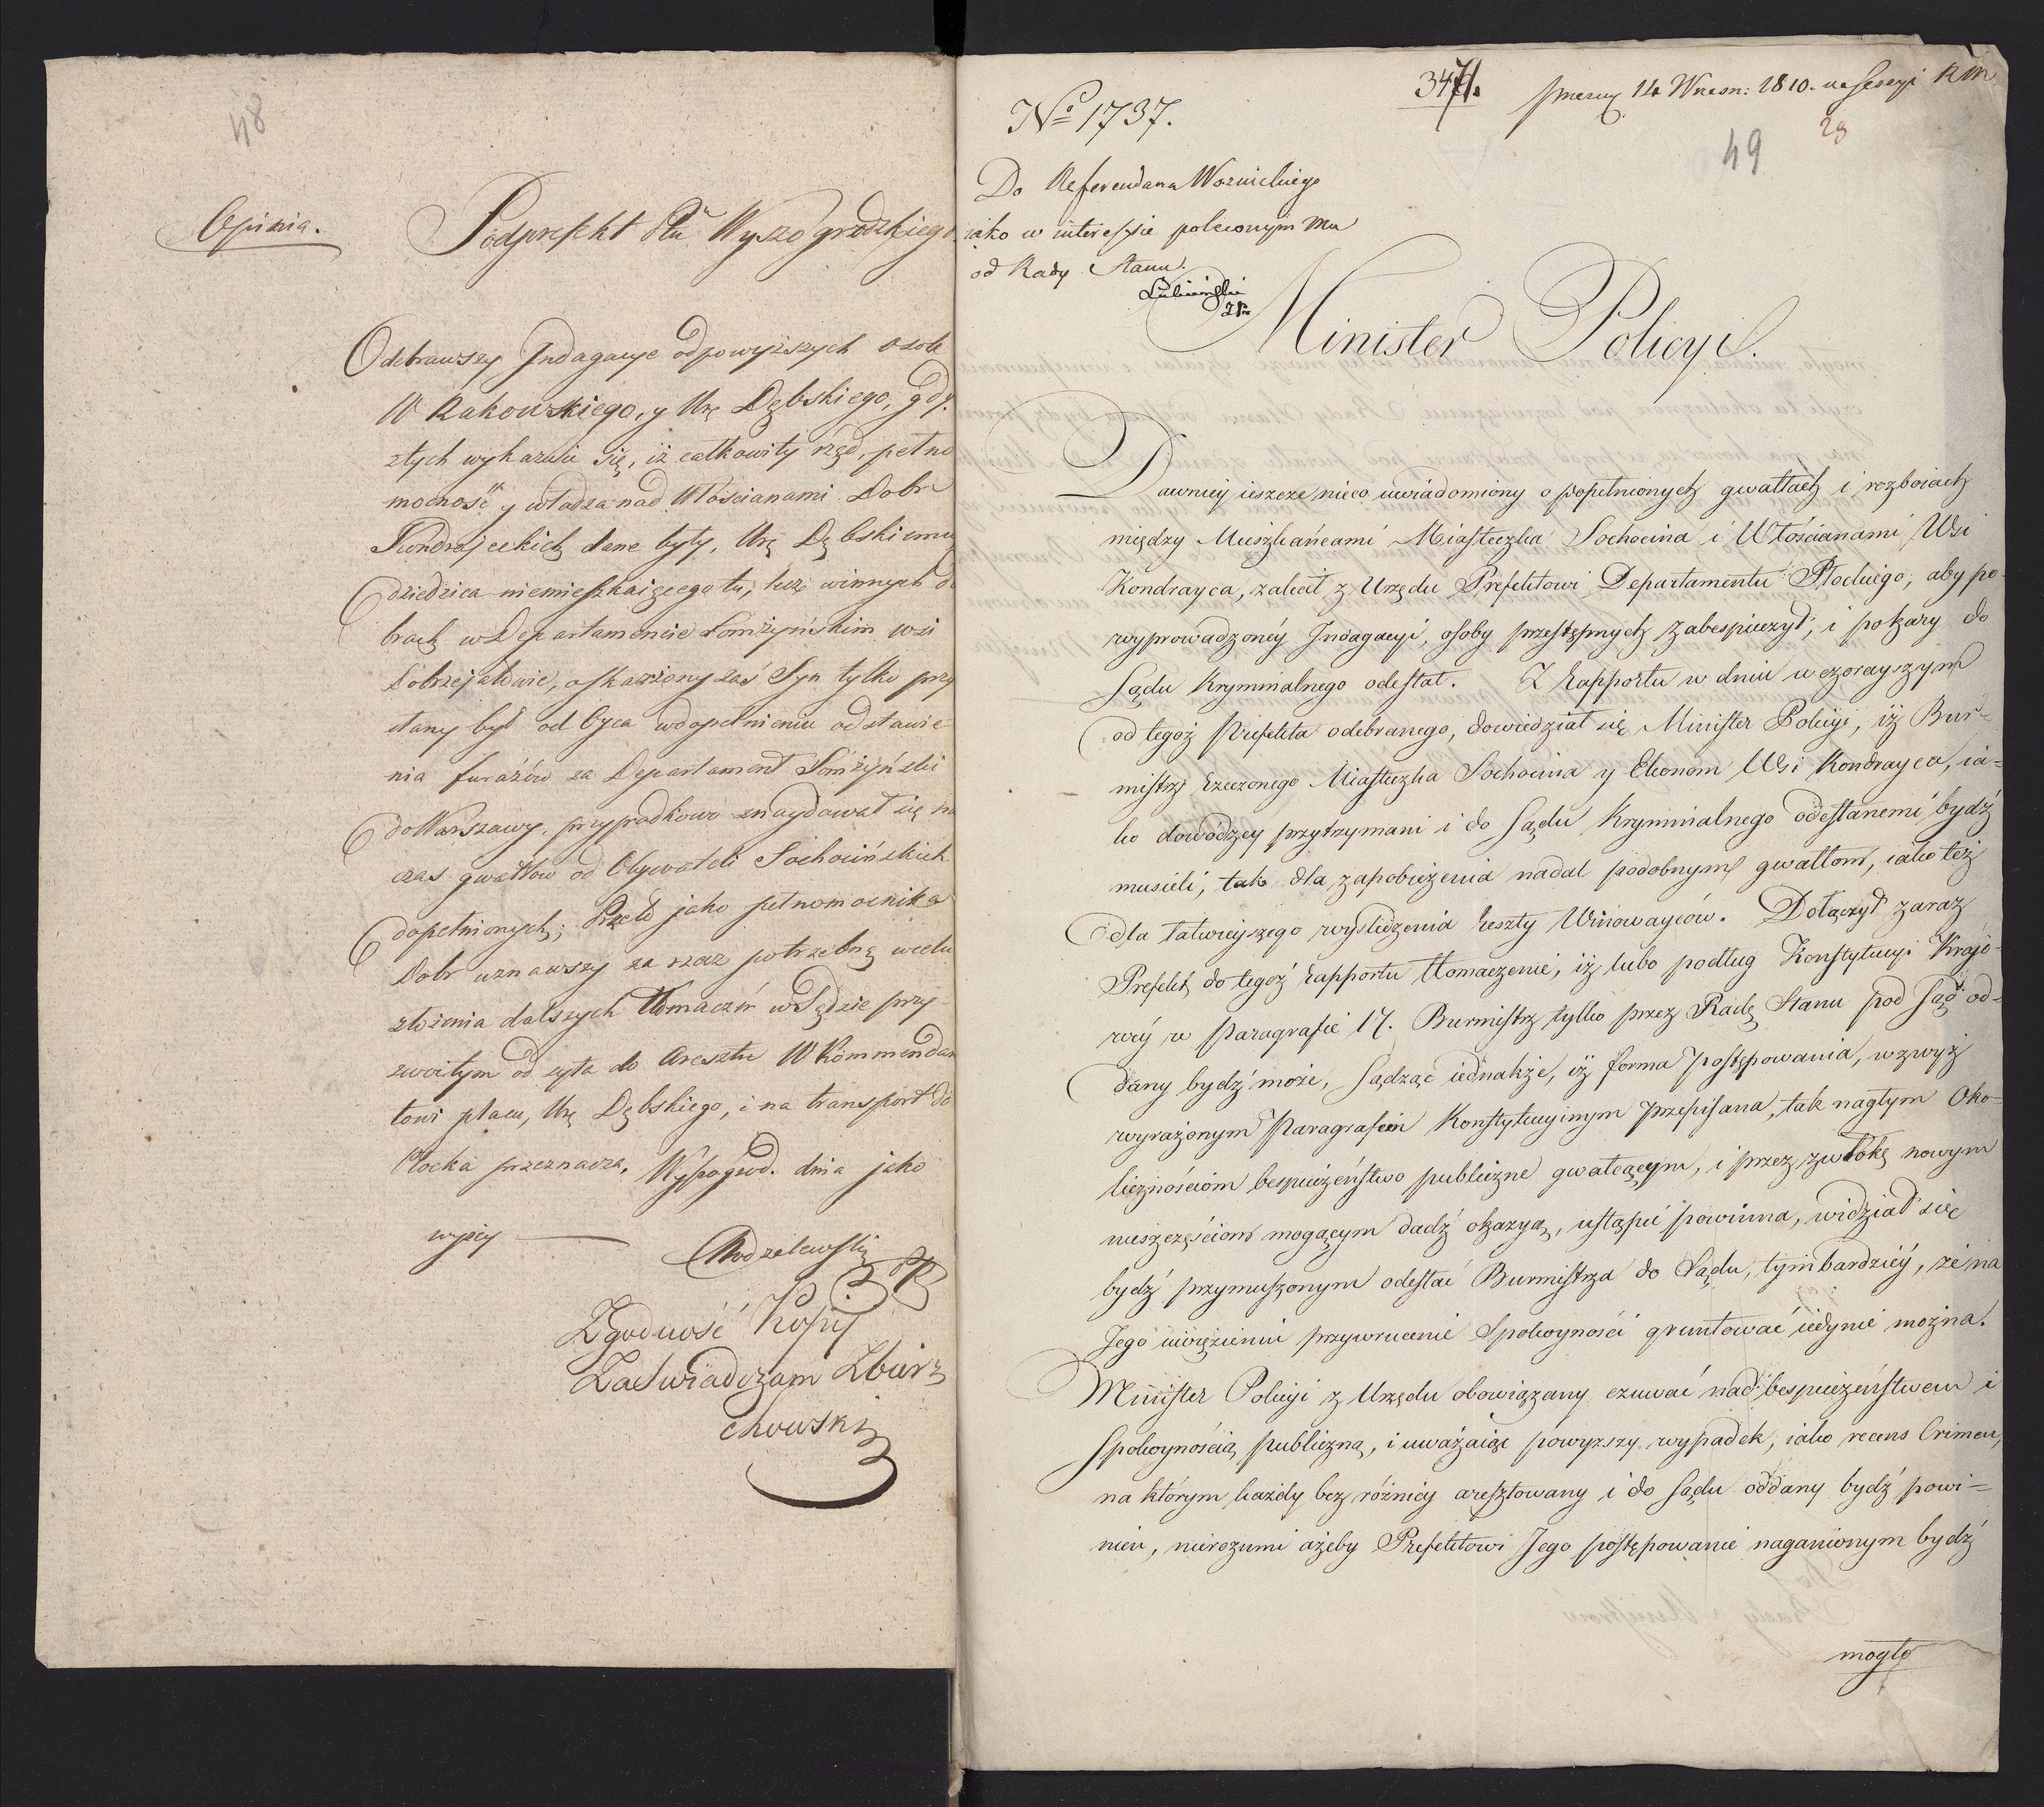 48
Opinia.
Podprefekt Ptu Wyszogrodzkiego
Odebrawszy Indagacye odpowyższych osob
W Rakowskiego, y Ur. Dębskiego, gdy
ztych wykazuie się, iż całkowity rząd, pełno
mocność y władza nad Włościanami Dobr
Kondrajeckich dane były, Ur. Dębskiemu
dziedzica niemieszkaiącego tu, lecz winnych do
brach w Departamencie Łomżyńskim wsi
Dobrzejałowie, oskarżony zaś Syn tylko przy
słany był od Oyca wdopełnieniu odstawie
nia furażów za Departament Łomżyński
do Warszawy, przypadkowo znaydował się na
czas gwałtow od Obywateli Sochocińskich
dopełnionych; Przeto jako pełnomocnika
Dobr uznawszy za rzecz potrzebną wcelu
złożenia dalszych tłomaczeń w Sądzie przy-
zwoitym odsyła do Aresztu W Kommendan
towi placu, Ur. Dębskiego, i na transport do
Płocka przeznacza. Wyszogrod. dnia jako
wyżey
Modzelewski
Zgodność Kopij
Zaświadczam Zbierz
chowski
No 1737.
3471.
14 Wrzesn: 1810. na Sessyi RM
49
28
Do Referendarza Woznickiego
iako w interessie poleconym mu
od Rady Stanu.
Lubieński
Minister Policyi.
Dawniey ieszcze nieco uwiadomiony o popełnionych gwałtach i rozboiach
między Mieszkańcami Miasteczka Sochocina i Włościanami Wsi
Kondrayca, zalecił z Urzędu Prefektowi Departamentu Płockiego, aby po-
wyprowadzoney Indagacyi, osoby przestępnych zabespieczył, i po kary do
Sądu Kryminalnego odesłał. Z Rapportu w dniu wczorayszym
od tegoż Prefekta odebranego, dowiedział się Minister Policyi, iż Bur-
mistrz rzeczonego Miasteczka Sochocina y Ekonom Wsi Kondrayca, ia-
ko dowódzcy przytrzymani i do Sądu Kryminalnego odesłanemi bydź
musieli, tak dla zapobieżenia nadal podobnym gwałtom, iako też
dla łatwieyszego wyśledzenia reszty Winowayców. Dołączył zaraz
Prefekt do tegoż rapportu tłomaczenie, iż lubo podług Konstytucyi Krajo-
wéy w Paragrafie 17. Burmistrz tylko przez Radę Stanu pod Sąd od-
dany bydź może, Sądząc iednakże, iż forma postępowania, wzwyż
wyrażonym Paragrafem Konstytucyinym przepisana, tak nagłym Oko-
licznościom bespieczeństwo publiczne gwałcącym, i przez zwłokę nowym
nieszczęściom mogącym dadź okazyą, ustąpić powinna, widział się
bydź przymuszonym odesłać Burmistrza do Sądu, tymbardziéy, że na
Jego uwięzieniu przywrucenie Spokoyności gruntować iedynie można.
Minister Policyi z Urzędu obowiązany czuwać nad bespieczeństwem i
Spokoynością publiczną, i uważaiąc powyższy wypadek, iako recens Crimen,
na którym każdy bez różnicy aresztowany i do Sądu oddany bydź powi=
nien, nierozumi ażeby Prefektowi Jego postępowanie naganionym bydź
mogło